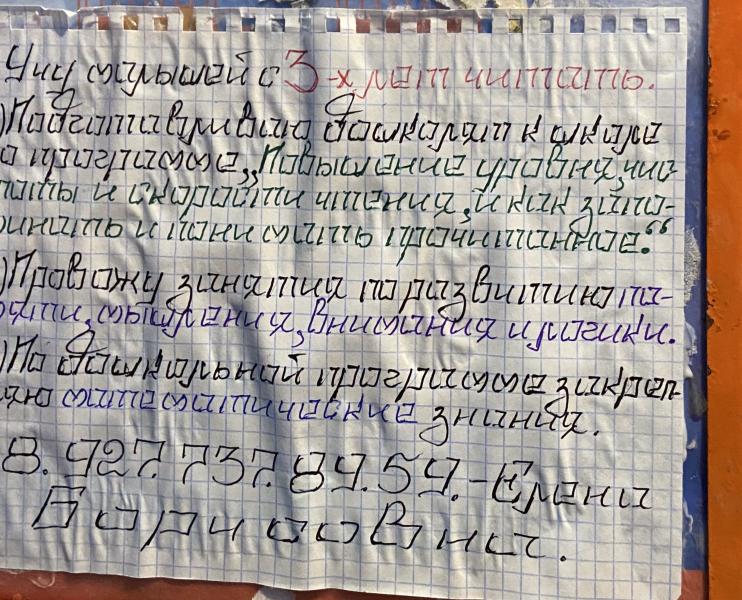 Учу малышей с 3-х лет читать.
)Подготавливаю дошколят к школе
о программе „Повышение уровня, чис-
тоты и скорости чтения, и как запо-
минать и понимать прочитанное.“
)Провожу занятия по развитию па-
мяти, мышления, внимания и логики.
)По дошкольной программе закреп-
ляю математические знания.
8. 927. 737. 89. 59. - Елена
Борисовна.